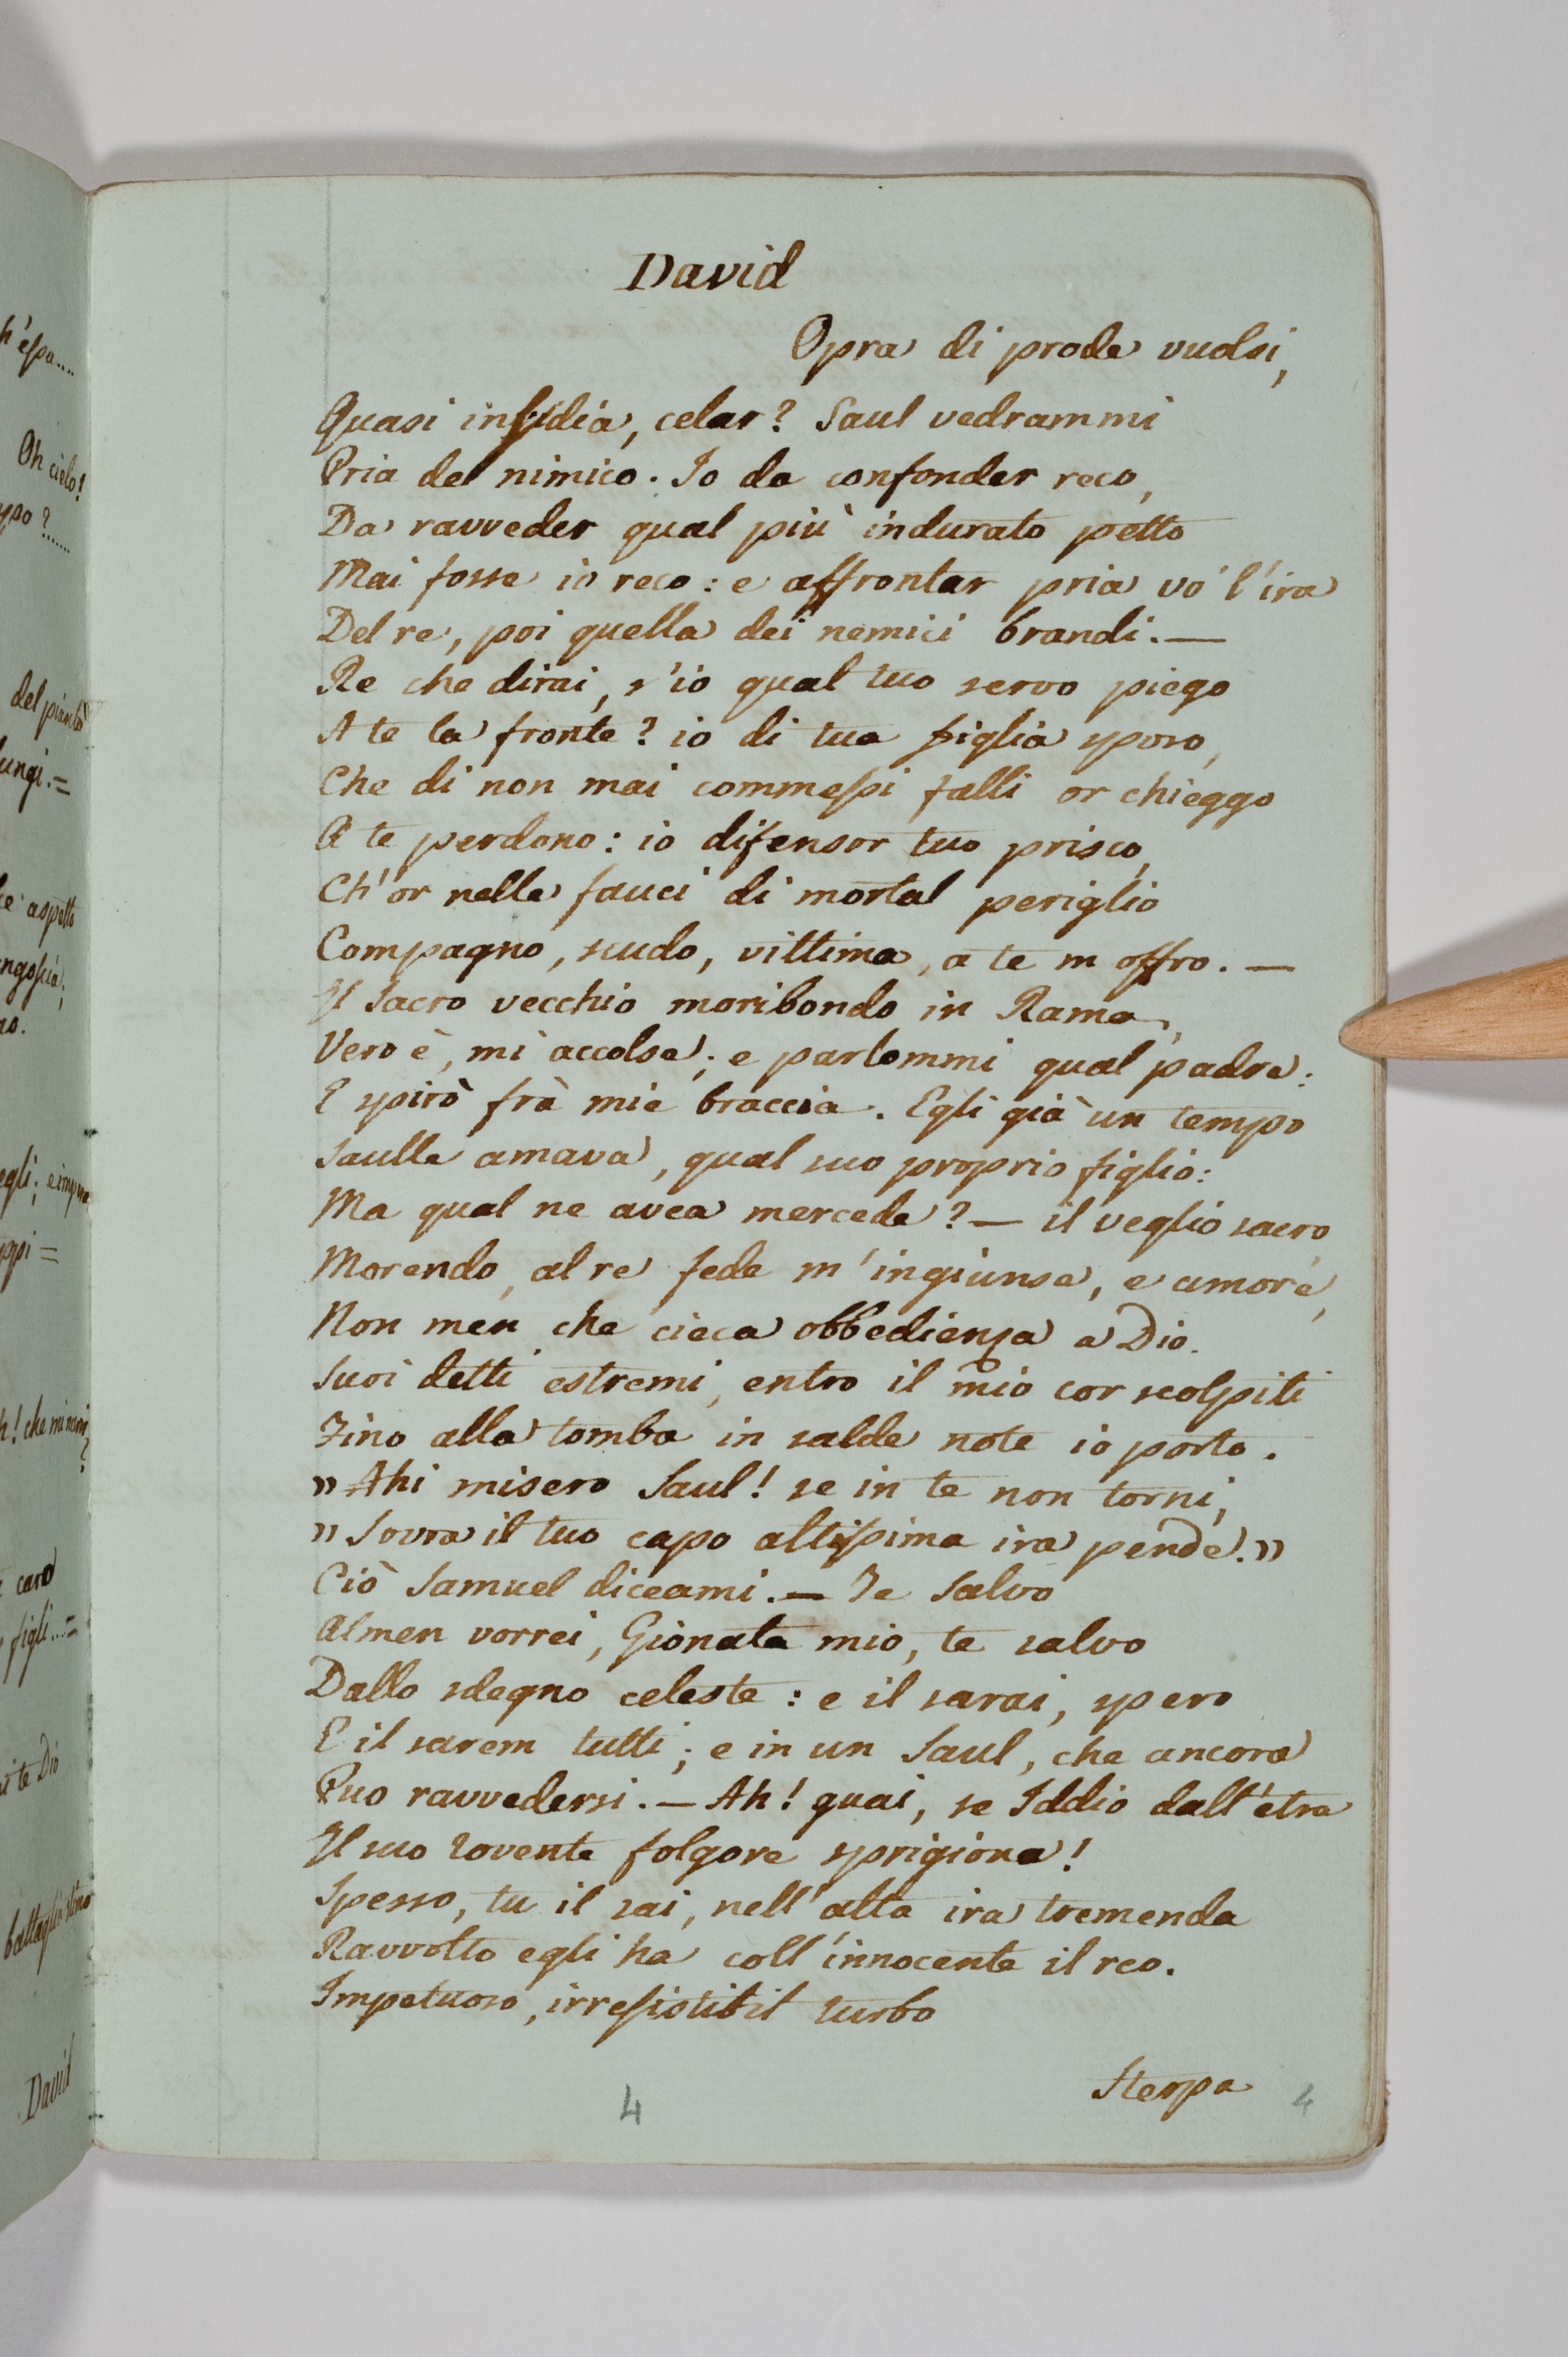 h'essa....
Oh cielo!
sposo?......
del pianto
lungi.=
aspetto
angoscia;
egli; e
=
h! che mi
caro
figli...=
te Dio
battaglia
David
David
Opra di prode vuolsi,
Quasi insidia, celar? Saul vedrammi
Pria del nimico. Io da confonder reco,
Da ravveder qual più indurato petto
Mai fosse io reco: e affrontar pria vo' l'ira
Del re, poi quella dei nemici brandi.—
Re che dirai, s'io qual tuo servo piego
A te la fronte? io di tua figlia sposo,
Che di non mai commessi falli or chieggo
A te perdono: io difensor tuo prisco,
Ch'or nelle fauci di mortal periglio
Compagno, scudo, vittima, a te m offro.—
Il Sacro vecchio moribondo in Rama,
Vero è, mi accolse; e parlommi qual padre:
E spirò frà mie braccia. Egli già un tempo
Saulle amava, qual suo proprio figlio:
Ma qual ne avea mercede?— il veglio sacro,
Morendo, al re fede m'ingiunse, e amore,
Non men che cieca obbedienza a Dio.
Suoi detti estremi, entro il mio cor scolpiti
Fino alla tomba in salde note io porto.
» Ahi misero Saul! se in te non torni,
» Sovra il tuo capo altissima ira pende.»
Ciò Samuel diceami.— Te Salvo
Almen vorrei, Gionata mio, te salvo
Dallo sdegno celeste: e il sarai, spero
E il sarem tutti; e in un Saul, che ancora
Puo ravvedersi.— Ah! guai, se Iddio dall'etra
Il suo rovente folgore sprigiona!
Spesso, tu il sai, nell'alta ira tremenda
Ravvolto egli ha coll'innocente il reo.
Impetuoso, irresistibil turbo
Sterpa
4 4